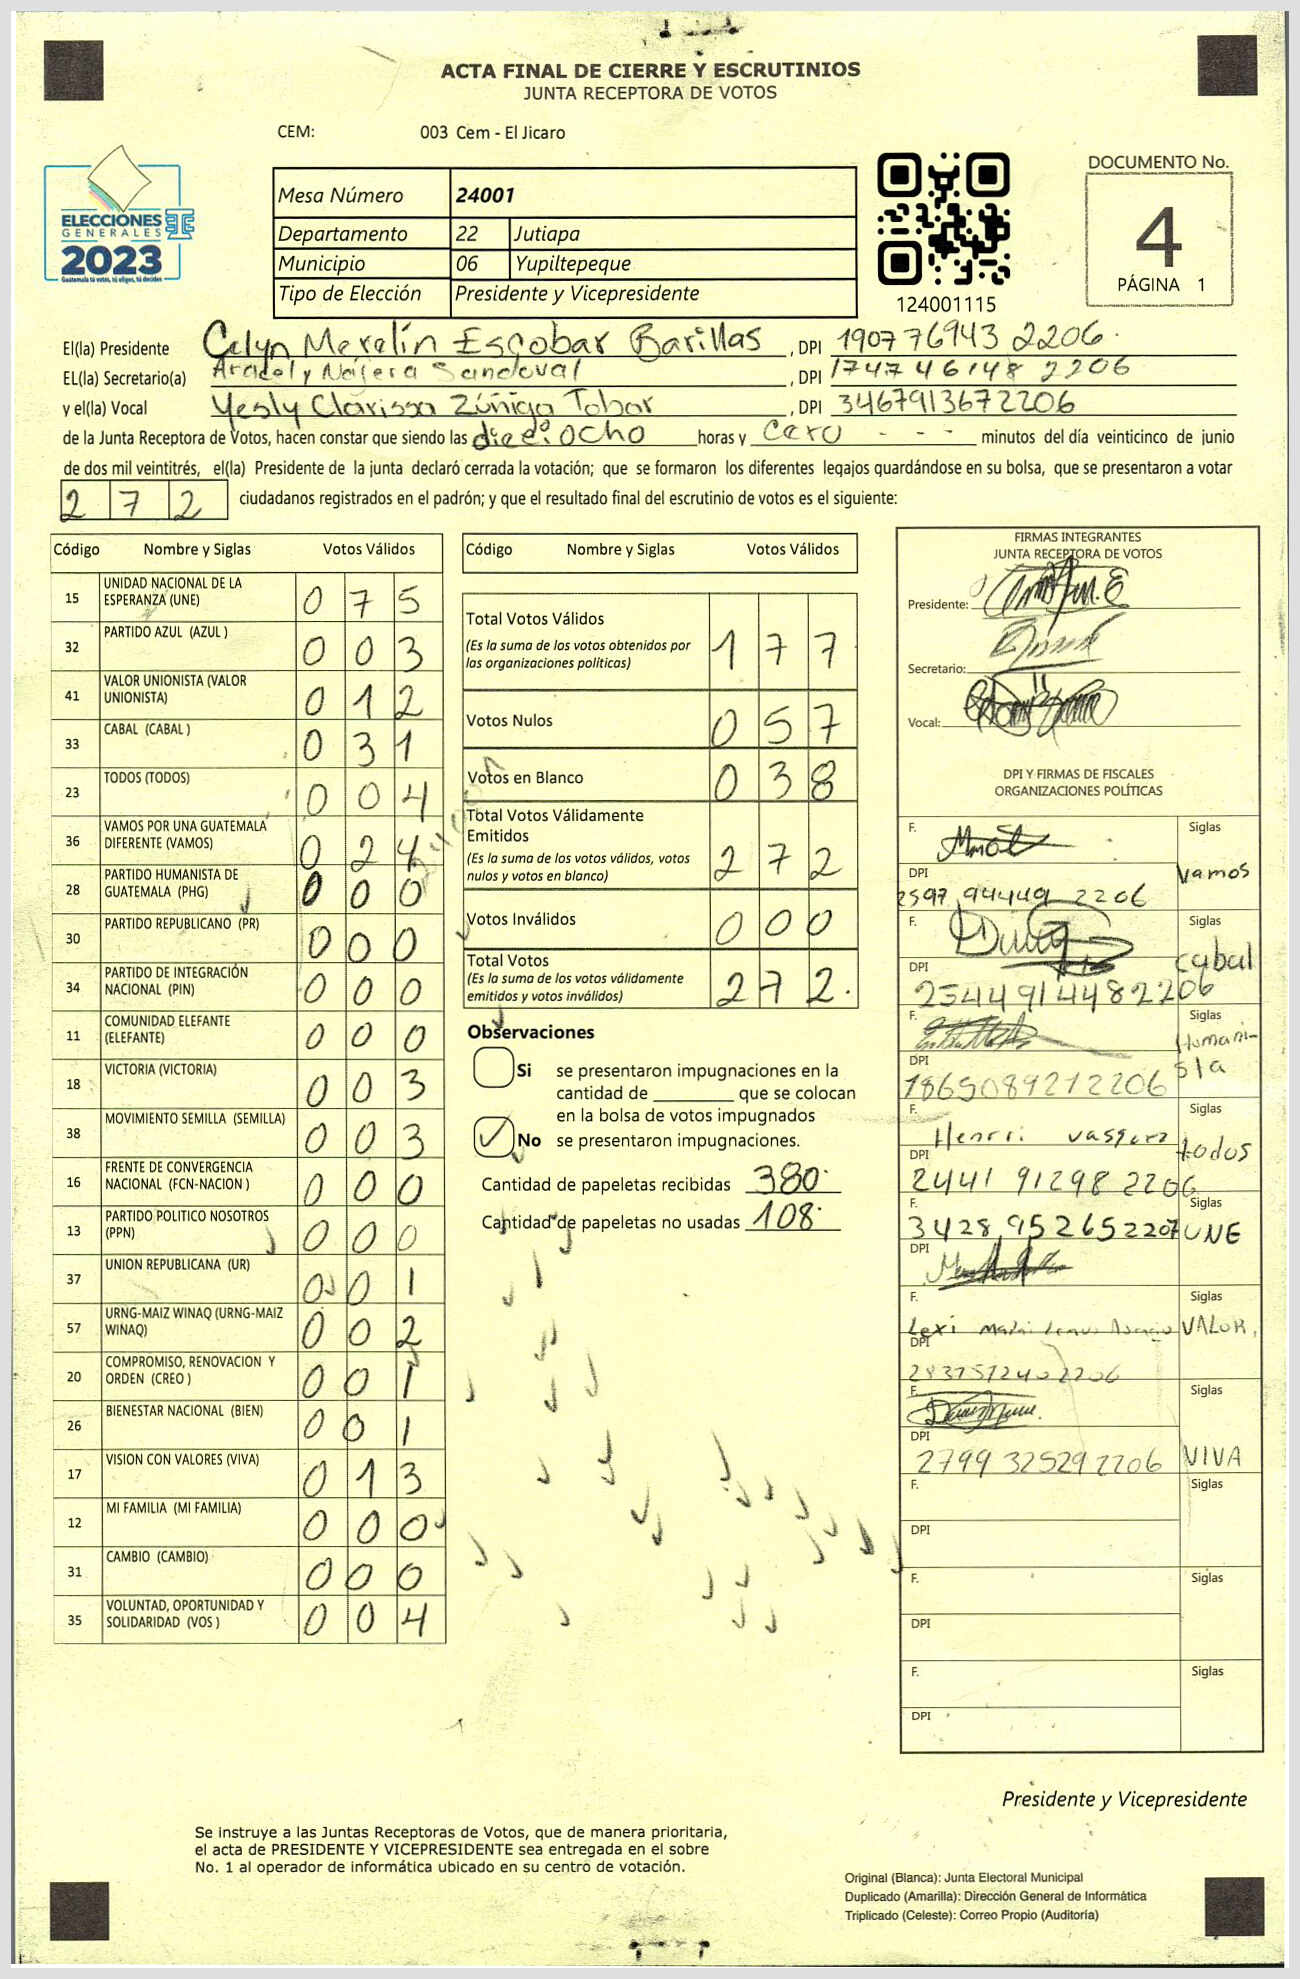 ACTA FINAL DE CIERRE Y ESCRUTINIOS
JUNTA RECEPTORA DE VOTOS
CEM: 003 Cem - El Jicaro
ELECCIONES
GENERALES
2023
Guatemala tú votas, tú eliges, tú decides
Mesa Número 24001
Departamento 22 Jutiapa
Municipio 06 Yupiltepeque
Tipo de Elección Presidente y Vicepresidente
124001115
DOCUMENTO No.
4
PÁGINA 1
El(la) Presidente Celyn Merelín Escobar Barillas , DPI 190776943 2206
EL(la) Secretario(a) Aracely Nájera Sandoval , DPI 174746148 2206
y el(la) Vocal Yesly Clarissa Zúñiga Tobar , DPI 3467913672206
de la Junta Receptora de Votos, hacen constar que siendo las dieciocho horas y cero - - - minutos del día veinticinco de junio
de dos mil veintitrés, el(la) Presidente de la junta declaró cerrada la votación; que se formaron los diferentes legajos quardándose en su bolsa, que se presentaron a votar
2 7 2 ciudadanos registrados en el padrón; y que el resultado final del escrutinio de votos es el siguiente:
Código Nombre y Siglas Votos Válidos
15 UNIDAD NACIONAL DE LA ESPERANZA (UNE) 0 7 5
32 PARTIDO AZUL (AZUL ) 0 0 3
41 VALOR UNIONISTA (VALOR UNIONISTA) 0 1 2
33 CABAL (CABAL ) 0 3 1
23 TODOS (TODOS) 0 0 4
36 VAMOS POR UNA GUATEMALA DIFERENTE (VAMOS) 0 2 4
28 PARTIDO HUMANISTA DE GUATEMALA (PHG) 0 0 0
30 PARTIDO REPUBLICANO (PR) 0 0 0
34 PARTIDO DE INTEGRACIÓN NACIONAL (PIN) 0 0 0
11 COMUNIDAD ELEFANTE (ELEFANTE) 0 0 0
18 VICTORIA (VICTORIA) 0 0 3
38 MOVIMIENTO SEMILLA (SEMILLA) 0 0 3
16 FRENTE DE CONVERGENCIA NACIONAL (FCN-NACION ) 0 0 0
13 PARTIDO POLITICO NOSOTROS (PPN) 0 0 0
37 UNION REPUBLICANA (UR) 0 0 1
57 URNG-MAIZ WINAQ (URNG-MAIZ WINAQ) 0 0 2
20 COMPROMISO, RENOVACION Y ORDEN (CREO ) 0 0 1
26 BIENESTAR NACIONAL (BIEN) 0 0 1
17 VISION CON VALORES (VIVA) 0 1 3
12 MI FAMILIA (MI FAMILIA) 0 0 0
31 CAMBIO (CAMBIO) 0 0 0
35 VOLUNTAD, OPORTUNIDAD Y SOLIDARIDAD (VOS ) 0 0 4
Código Nombre y Siglas Votos Válidos
Total Votos Válidos 1 7 7
(Es la suma de los votos obtenidos por
las organizaciones políticas)
Votos Nulos 0 5 7
Votos en Blanco 0 3 8
Total Votos Válidamente
Emitidos 2 7 2
(Es la suma de los votos válidos, votos
nulos y votos en blanco)
Votos Inválidos 0 0 0
Total Votos 2 7 2.
(Es la suma de los votos válidamente
emitidos y votos inválidos)
Observaciones
Si se presentaron impugnaciones en la
cantidad de ________ que se colocan
en la bolsa de votos impugnados
No se presentaron impugnaciones.
Cantidad de papeletas recibidas 380
Cantidad de papeletas no usadas 108
FIRMAS INTEGRANTES
JUNTA RECEPTORA DE VOTOS
Presidente:
Secretario:
Vocal:
DPI Y FIRMAS DE FISCALES
ORGANIZACIONES POLÍTICAS
F. Siglas
DPI Vamos
2597 94449 2206
F. Siglas
DPI Cabal
2544914482206
F. Siglas
DPI Humanista
1865089212206
F. Henrri vasquez Siglas
DPI todos
2441 91298 2206
F. 3428 952652207 Siglas
DPI UNE
F. Lexi Siglas
DPI VALOR
2837572402206
F. Siglas
DPI
2799 325292206 VIVA
F. Siglas
DPI
F. Siglas
DPI
F. Siglas
DPI
Presidente y Vicepresidente
Se instruye a las Juntas Receptoras de Votos, que de manera prioritaria,
el acta de PRESIDENTE Y VICEPRESIDENTE sea entregada en el sobre
No. 1 al operador de informática ubicado en su centro de votación.
Original (Blanca): Junta Electoral Municipal
Duplicado (Amarilla): Dirección General de Informática
Triplicado (Celeste): Correo Propio (Auditoría)